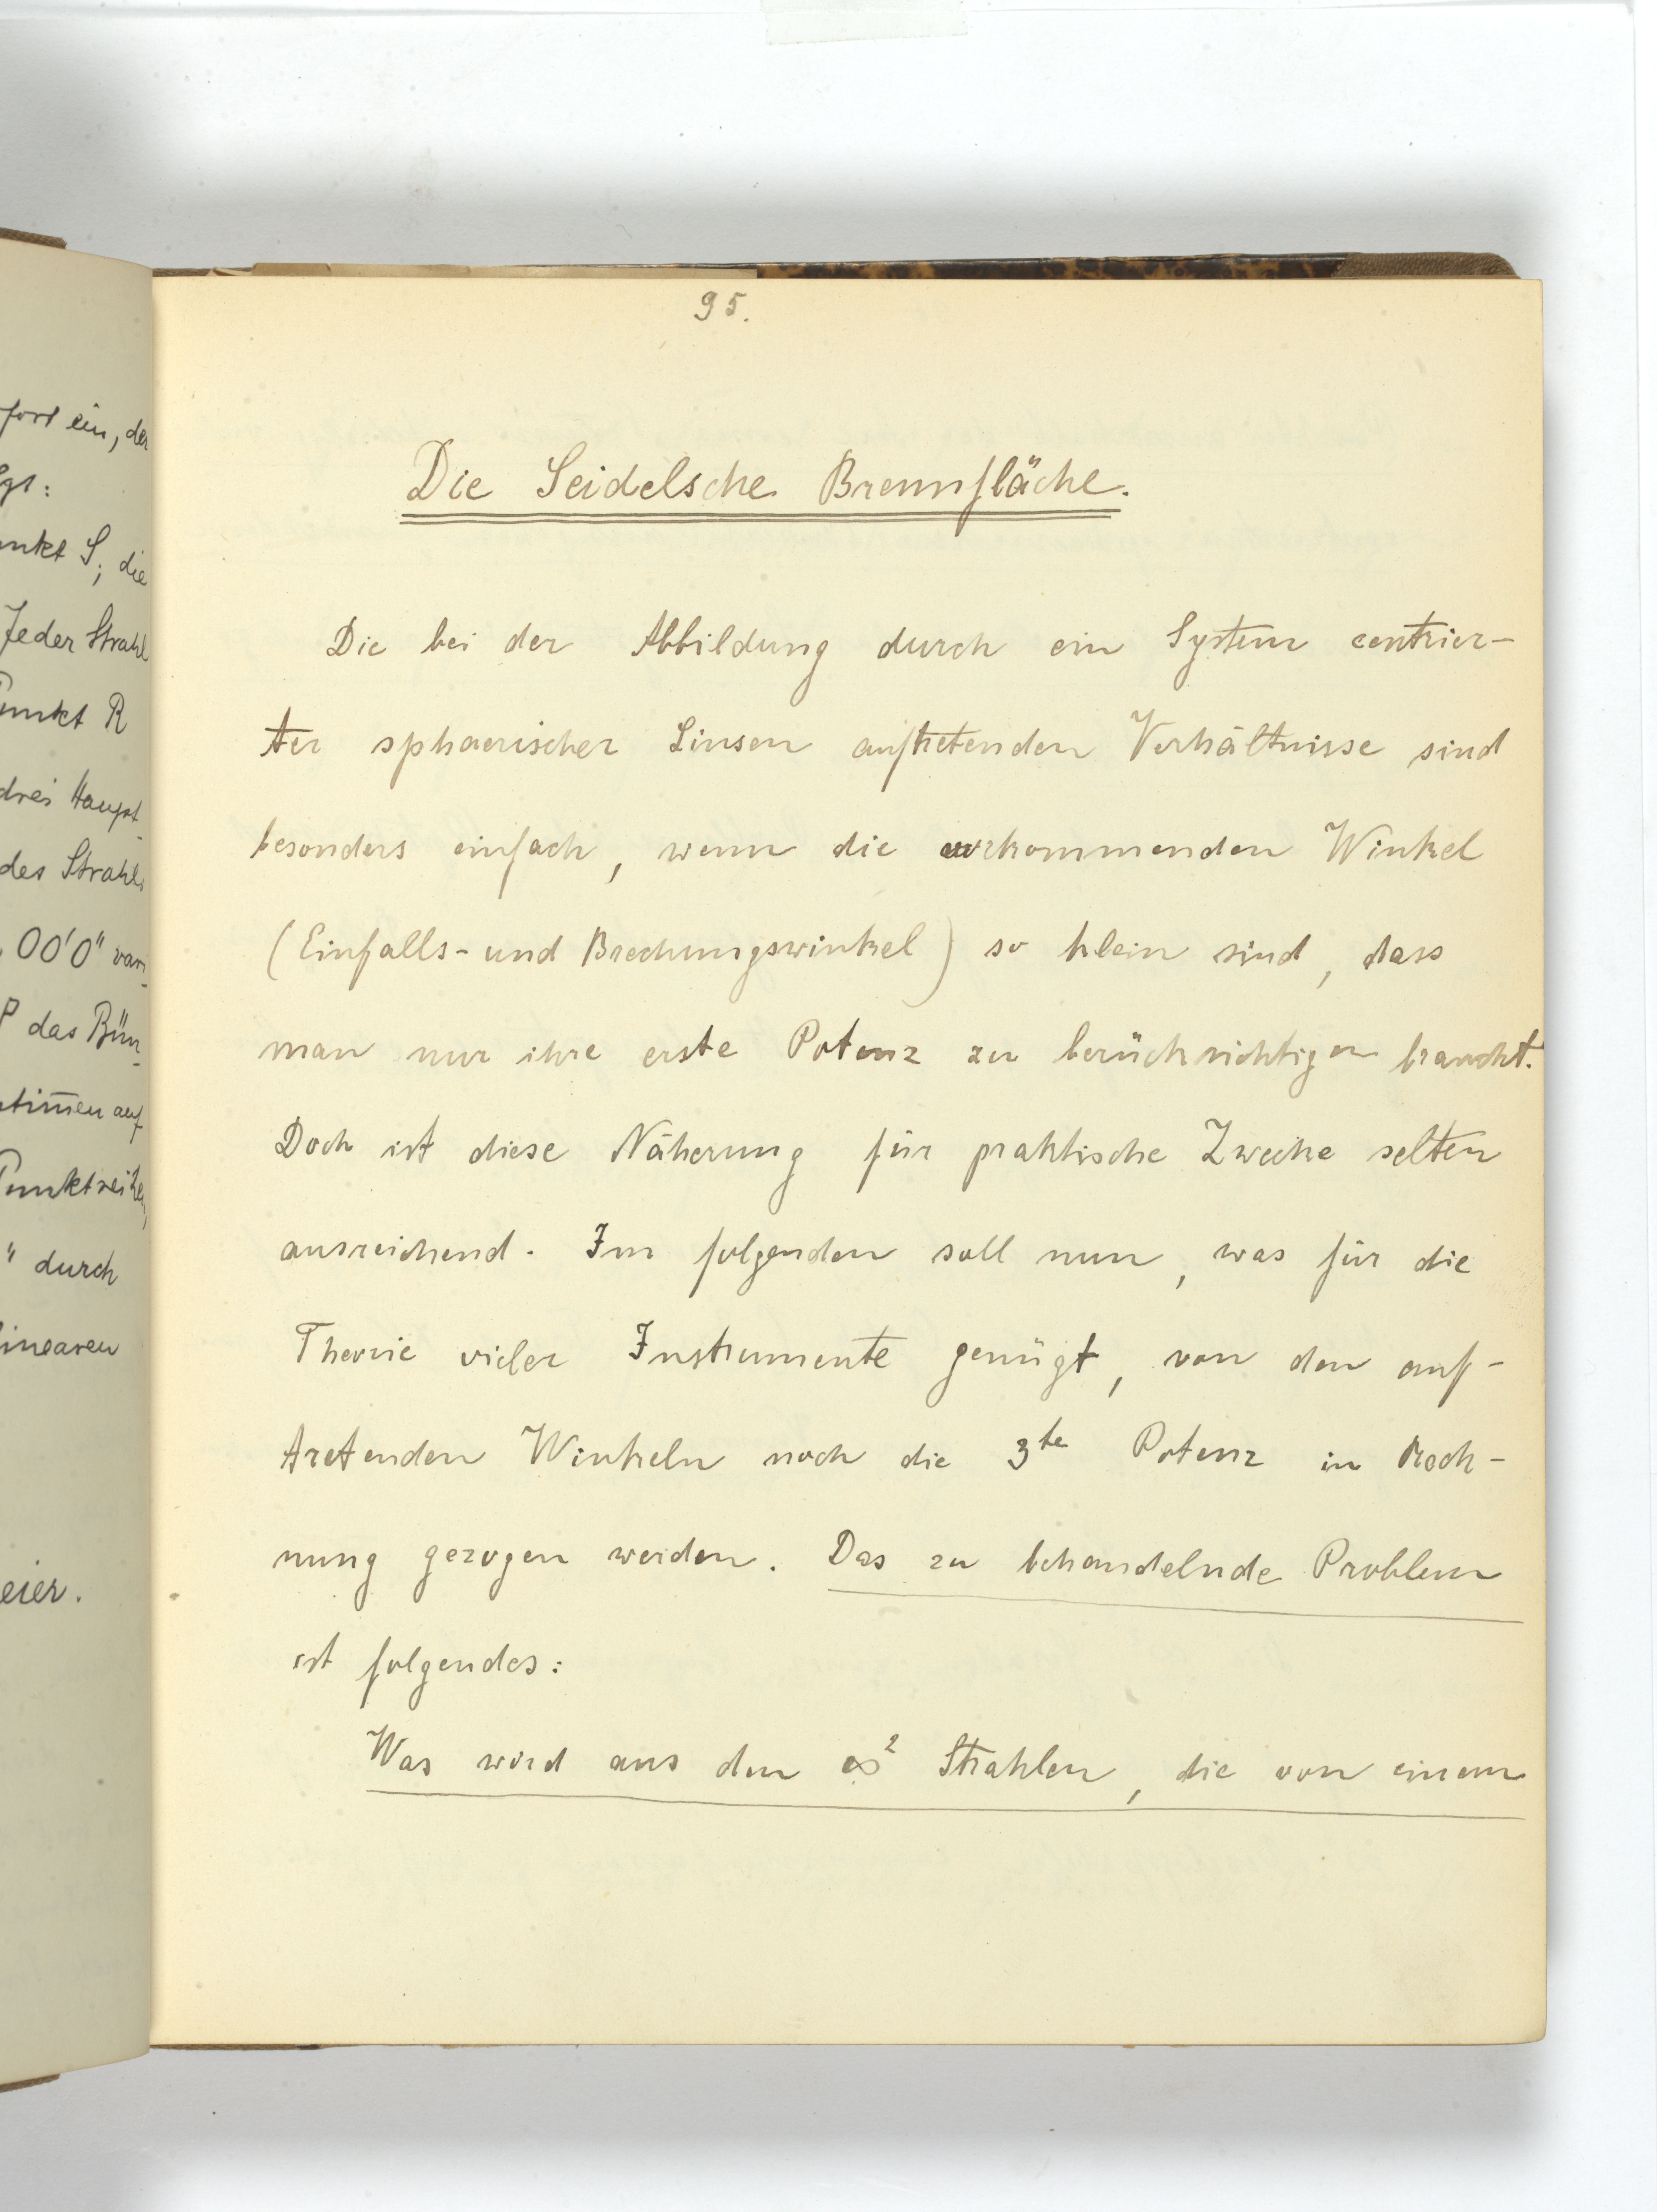 fort ein, der
gt:
nkt S; die
Jeder Strahl
Punkt R
drei Haupt-
des Strahls
, OO'O" vari-
P das Bün-
stim̄en auf
Punktreihen,
" durch
linearen
eier.
95.
Die Seidelsche Brennfläche.
Die bei der Abbildung durch ein System centrier-
ter sphaerischer Linsen auftretenden Verhältnisse sind
besonders einfach, wenn die vorkommenden Winkel
(Einfalls- und Brechungswinkel) so klein sind, dass
man nur ihre erste Potenz zu berücksichtigen braucht.
Doch ist diese Näherung für praktische Zwecke selten
ausreichend. Im folgenden soll nun, was für die
Theorie vieler Instrumente genügt, von den auf-
tretenden Winkeln noch die 3te Potenz in Rech-
nung gezogen werden. Das zu behandelnde Problem
ist folgendes:
Was wird aus den ∞² Strahlen, die von einem